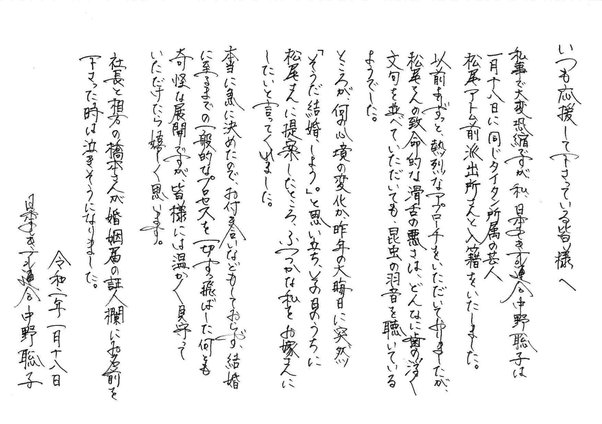 いつも応援して下さっている皆様へ
私事で大変恐縮ですが、私、日本エレキテル連合中野聡子は
一月十八日に同じタイタン所属の芸人
松尾アトム前派出所さんと入籍をいたしました。
以前よりずっと、熱烈なアプローチをいただいておりましたが、
松尾さんの致命的な滑舌の悪さは、どんなに歯の浮く
文句を並べていただいても、昆虫の羽音を聴いている
ようでした。
ところが何の心境の変化か昨年の大晦日に突然
「そうだ結婚、しよう。」と思い立ち、その日のうちに
松尾さんに提案したところ、ふつつかな私をお嫁さんに
したいと言ってくれました。
本当に急に決めたので、お付き合いなどもしておらず、結婚
に至るまでの一般的なプロセスを一切すっ飛ばした何とも
奇怪な展開ですが、皆様には温かく見守って
いただけたら嬉しく思います。
社長と相方の橋本さんが婚姻届の証人欄にお名前を
下さった時は泣きそうになりました。
令和二年一月十八日
日本エレキテル連合 中野聡子